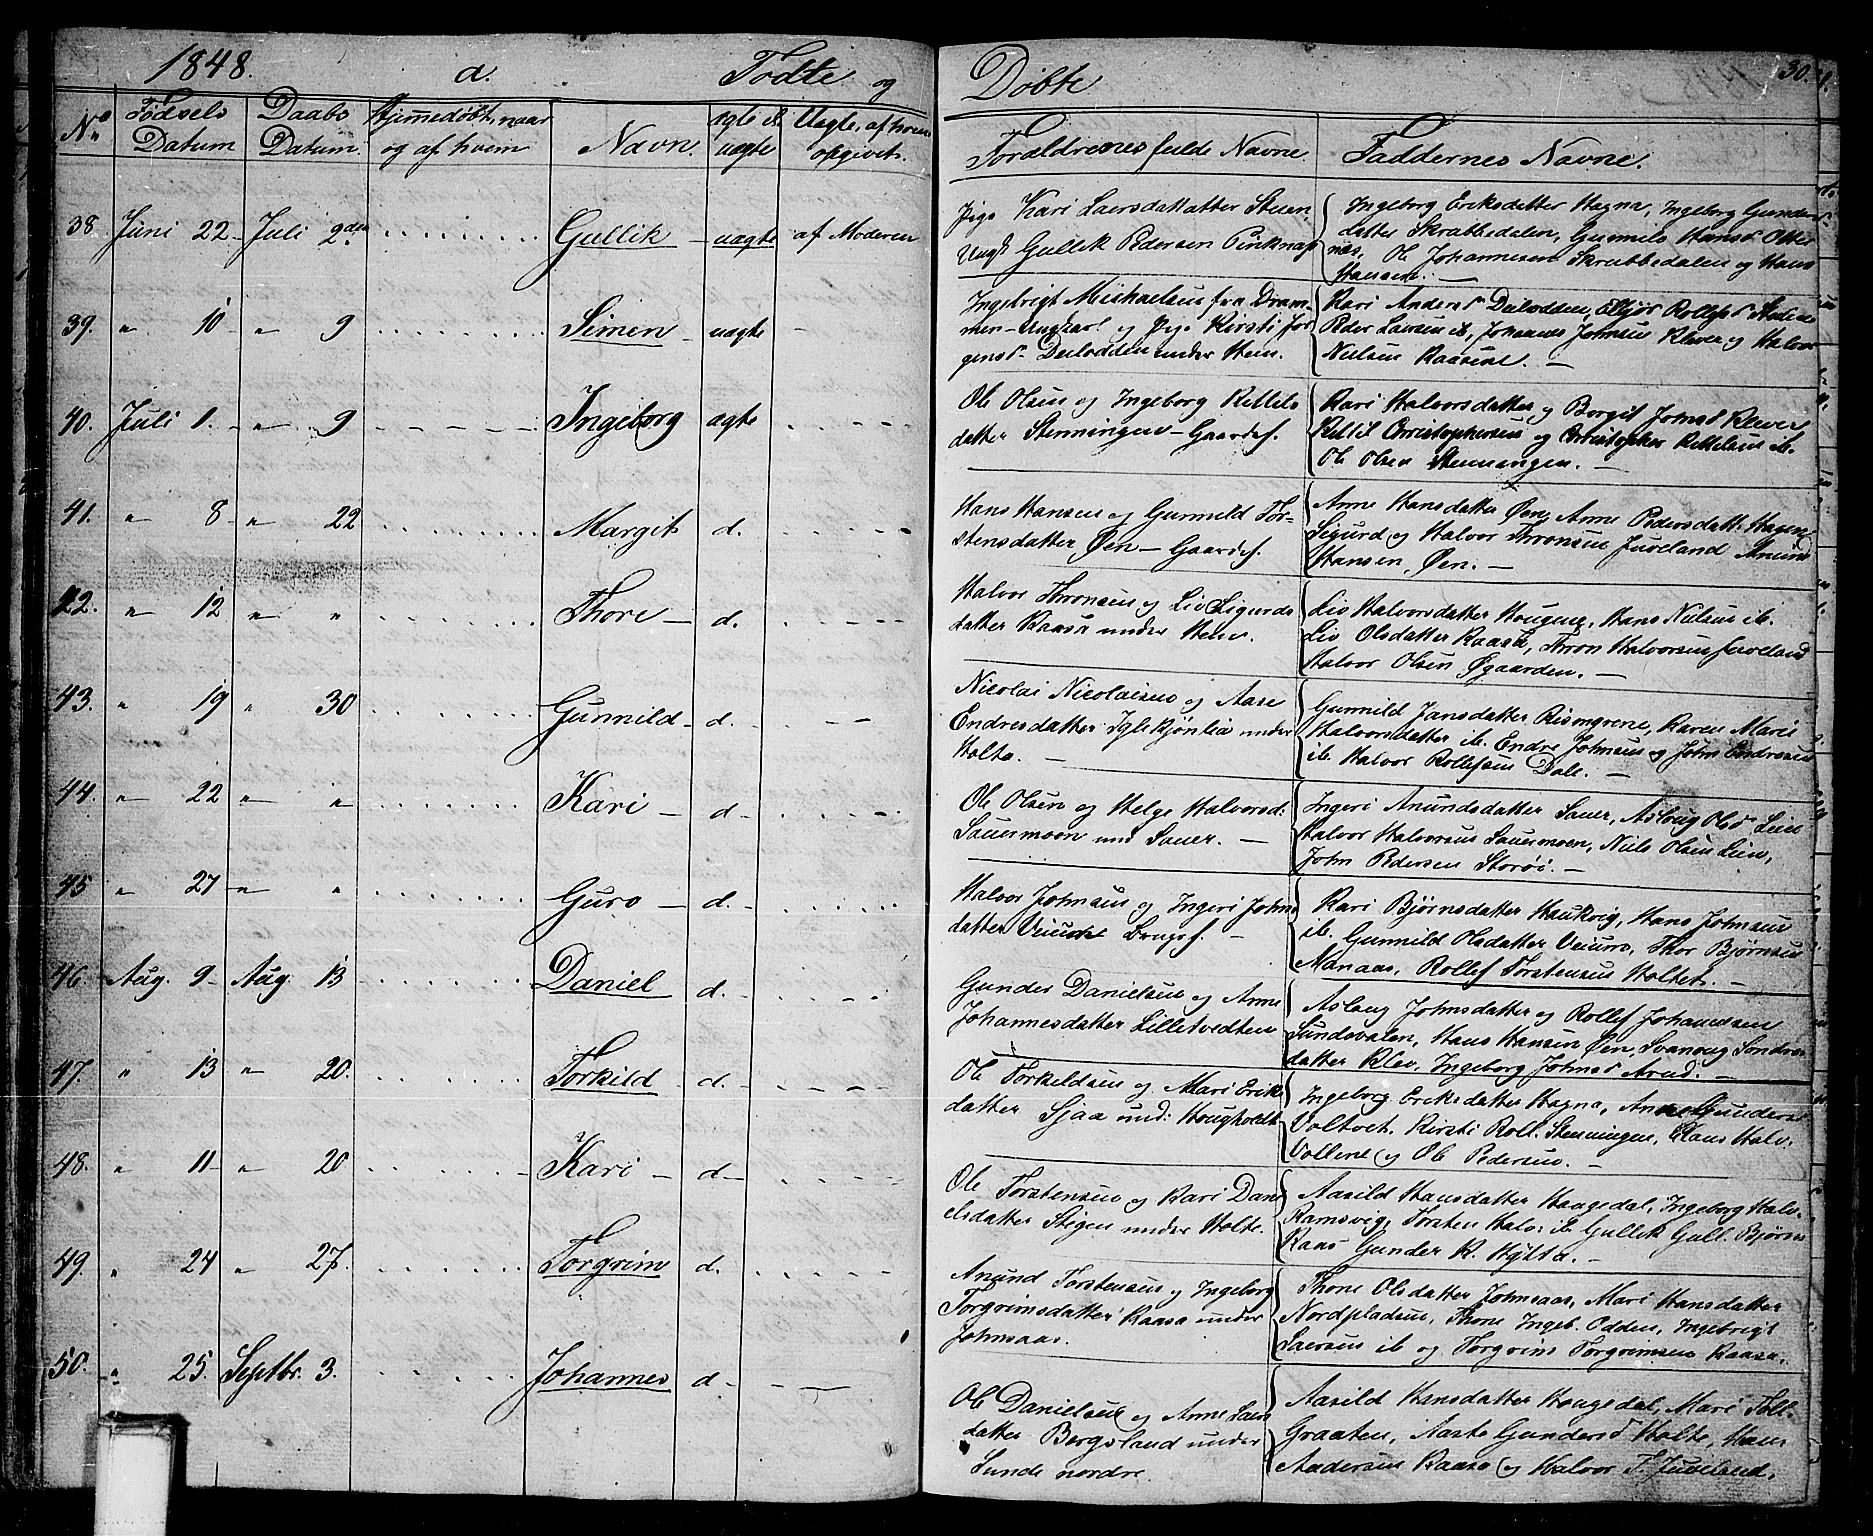 1848. a. Fødte og
Døbte
30.
No Fødsels Datum Daabs Datum Hjemmedøbt, naar og af hvem Navn. ægte el. uægte Uægte, af hvem opgivet.
Forældrenes fulde Navne. Faddernes Navne.
38 Juni 22 - Juli 2den Gullik - uægte af Moderen
Pige Kari Laersdatter Steen,
Ungk Gullik Pedersen
Ingeborg Eriksdatter Hagna, Ingeborg Gunders
datter Skrabbedalen, Gunnild Hansd Otter
næs, Ole Johannesen Skrabbedalen og Hans
Hansen. —
39. " 10 " 9 Simen - uægte -
Ingebrigt Mikkaelsen fra Dram-
men - Ungkarl og Pige Kirsti Jør
gensd. Dalodden under Steen.
Kari Andersd Dalodden,
Peder Laersen ib, Johannes Johnsen Klever og Halvor
Nielsen Raasen. —
40. Juli 1. - " 9 Ingeborg ægte
Ole Olsen og Ingeborg Kittils
datter Stenningen - Gaardf.
Kari Halvorsdatter og Borgit Johnsd Klever
Kittil Christophersen og Christopher Kittelsen ib.
Ole Olsen Stenningen. —
41. " 8 - " 22 Margit d.
Hans Hansen og Gunnild Tor-
stensdatter Øen - Gaardf.
Anne Hansdatter Øen, Anne Pedersdatt. Hagen
Sigurd og Halvor Thronsen Juveland
Hansen, Øen. —
42. " 12 " " Thore - d.
Halvor Thronsen og Liv Sigurds
datter Raasa under Steen.
Liv Halvorsdatter Hougen, Hans Nielsen ib.
Liv Olsdatter Raasa, Thron Halvorsen Juveland
Halvor Olsen Øgaarden. —
43. " 19 " 30 Gunnild - d.
Nicolai Nicolaisen og Aase
Endresdatter Iglekjønlia under
Holte. —
Gunnild Jansdatter Risongrene, Karen Mari
Halvorsdatter ib. Endre Johnsen og John Endresen
ib. Halvor Rollefsen Dale. —
44. " 22 " " Kari - d -
Ole Olsen og Helge Halvorsd:
Sauermoen und Sauer. —
Ingeri Anundsdatter Sauer, Aslaug Olsd Leien
Halvor Halvorsen Sauermoen, Niels Olsen Leien,
John Pedersen Storøi. —
45 " 27 " " Guro - d.
Halvor Johnsen og Ingeri Johns
datter Veium Brugsf. —
Kari Bjørnsdatter Haukvig, Hans Johnsen
ib. Gunnild Olsdatter Veium, Thor Bjørnsen
Nanaas, Rollef Torstensen Holtet. —
46. Aug. 9 - Aug. 13 Daniel d.
Gunder Danielsen og Anne
Johannesdatter Lilletvedten
Aslaug Johnsdatter og Rollef Johannesen
Sundsvalen, Hans Hansen Øen, Svanaug Sondre
datter Klev, Ingeborg Johnsd Arud. —
47. " 13 " 20. Torkild - d.
Ole Torkeldsen og Mari Erik
datter Sjaa und: Houghholdt
Ingeborg Eriksdatter Hagna, Anne Gundersd
Voltvet. Kirsti Roll. Stenningen, Claus Halv.
Vollene og Ole Pedersen. —
48. " 11 - " 20 Kari - d -
Ole Torstensen og Kari Dani
elsdatter Stigen under Holte.
Aasild Hansdatter Haagedal, Ingeborg Halv.
Ramsvig, Torsten Halv. ib Gullik Gull. Bjørn
Raas Gunder K. Hytta. —
49. " 24 " 27. Torgrim d.
Anund Torstensen og Ingeborg
Torgrimsdatter Raasa under
Johnsaas.
Thone Olsdatter Johnsaas, Mari Hansdatter
Nordpladsen, Thone Ingeb. Odden, Ingebrigt
Laersen ib og Torgrim Torgrimsen Raasa.
50. - " 25. Septbr. 3. Johannes d - —
Ole Danielsen og Anne Laers
datter Borgsland under
Sunde nordre.
Aasild Hansdatter Haagedal, Mari Toll.
Graaten, Aaste Gundersd Holte, Hans
Andersen Raasa og Halvor T. Juveland.